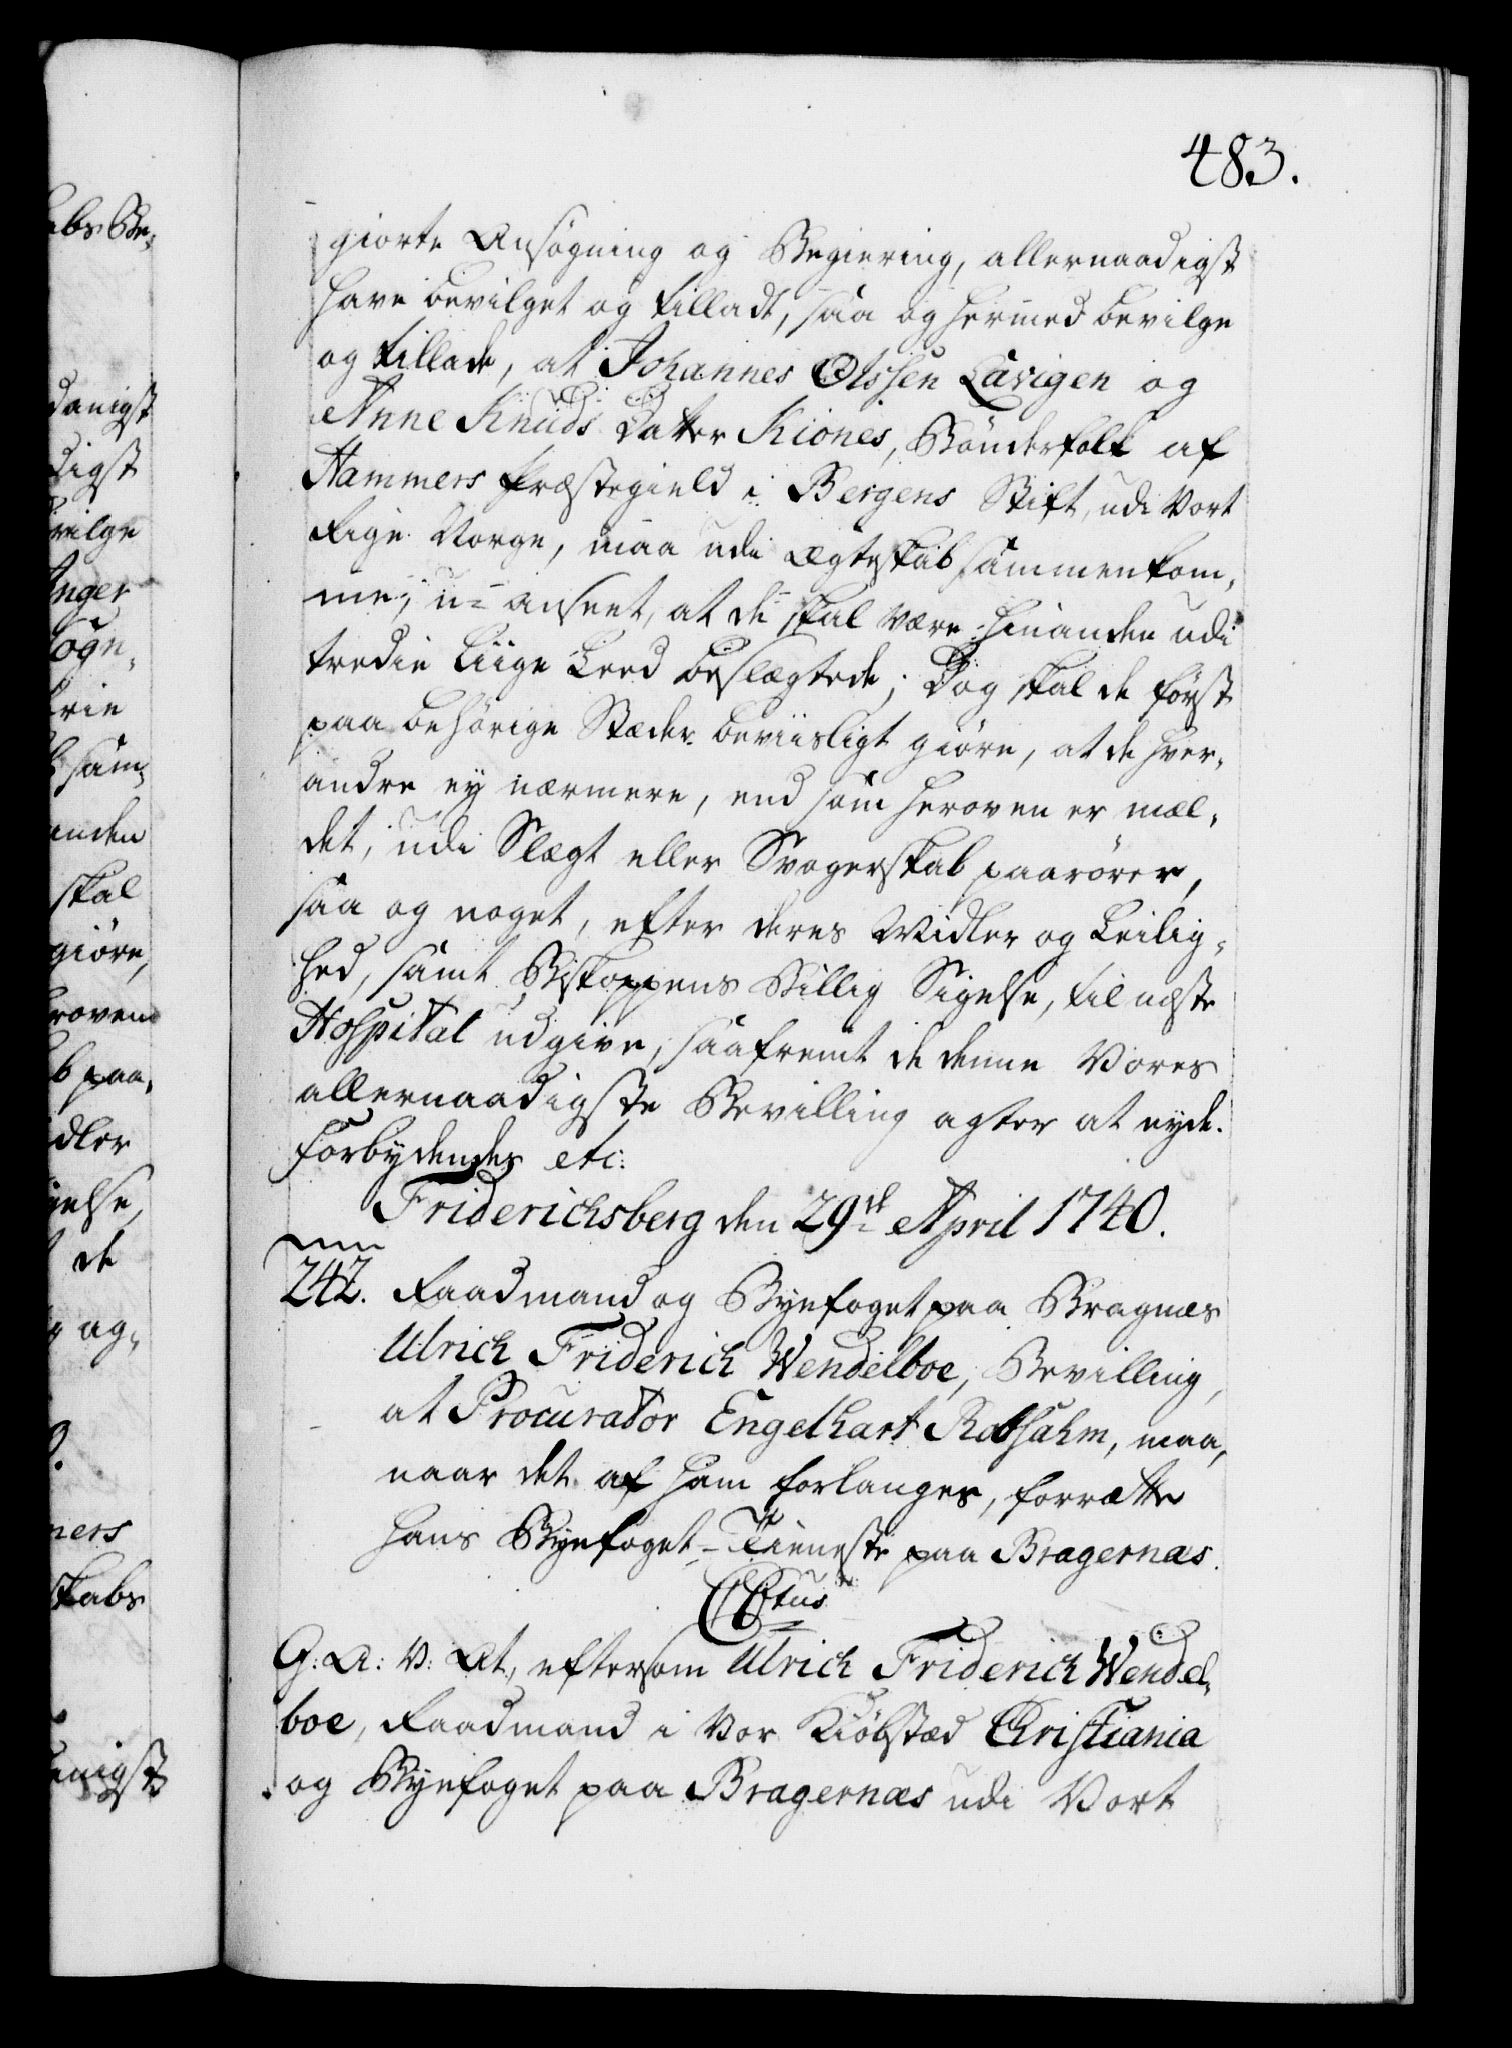 483.
giorte Ansøgning og Begiering, allernaadigst
have bevilget og tilladt, saa og hermed bevilge
og tillade, at Johannes Olssen Lavigen og
Anne Knuds Datter Kiönes, Bönderfolk af
Hammers Præstegield i Bergens Stift, udi Vort
Rige Norge, maa udi Ægteskab sammenkom-
me, u-anseet, at de skal være hinanden udi
tredie Liige Leed beslægtede; Dog skal de först
paa behörige Stæder beviisligt giöre, at de hver-
andre ey nærmere, end som heroven er mel-
det, udi Slægt eller Svogerskab paarörer,
saa og noget, efter deres Midler og Leilig-
hed, samt Biskoppens Billig Sigelse, til næste
Hospital udgive, saafremt de denne Vores
allernaadigste Bevilling agter at nyde.
Forbydendes etc:
Friderichsberg den 29de April 1740.
242. Raadmand og Byefoget paa Bragnæs
Ulrich Friderich Wendelboe, Bevilling,
at Procurator Engelhart Robsahm, maa,
naar det af ham forlanges, forrætte
hans Byefoget-Tieneste paa Bragernæs.
C6tus
G: A: V: At, eftersom Ulrich Friderich Wendel-
boe, Raadmand i Vor Kiöbstæd Christiania
og Byefoget paa Bragernæs udi Vort